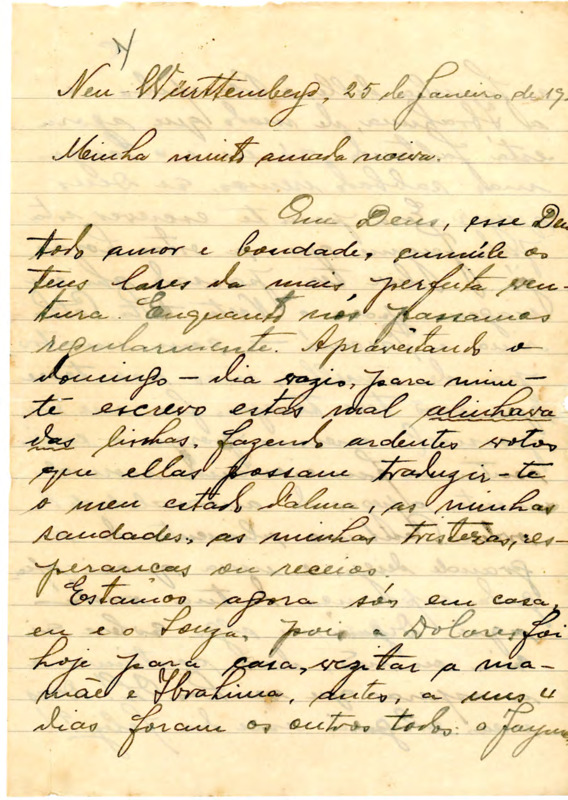 1
Neu-Württemberg, 25 de Janeiro de 19
Minha muito amada noiva.
Que Deus, esse Deu
todo amor e bondade, cumúle os
teus lares da mais perfeita ven-
tura. Enquanto nós passamos
regularmente. Aproveitando o
domingo - dia vazio, para mim -
te escrevo estas mal alinhava
das linhas, fazendo ardentes votos
que ellas possam traduzir-te
o meu estado d'alma, as minhas
saudades, as minhas tristezas, es-
peranças ou receios.
Estamos agora sós em casa,
eu e o Souza, pois a Dolores foi
hoje para casa, vezitar a ma-
mãe e Ibrahima, antes, a uns 4
dias foram os outros todos: o Jayme